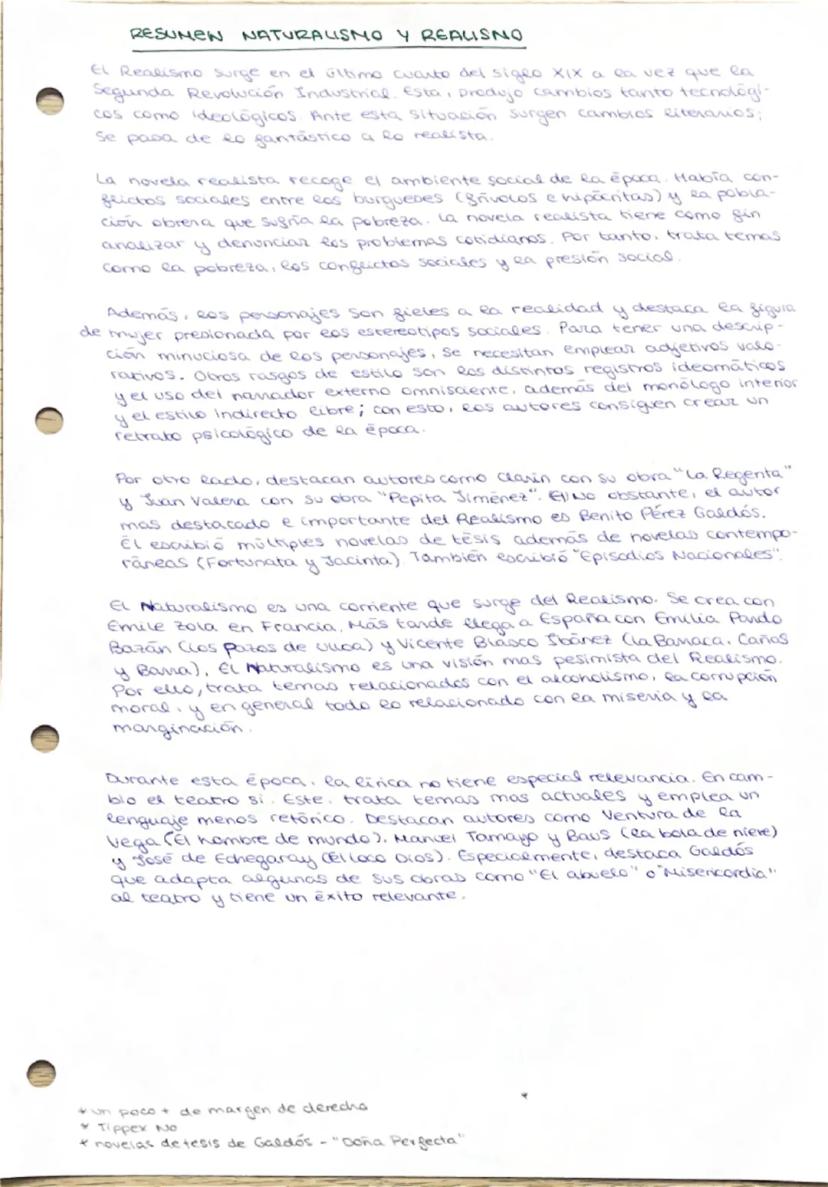 RESUMEN NATURALISMO Y REALISMO
El Realismo surge en el último cuarto del siglo XIX a la vez que la
Segunda Revolución Industrial. Esta, produjo cambios tanto tecnológi-
cos como ideológicos. Ante esta situación surgen cambios literarios;
se pasa de lo fantástico a lo realista.
La novela realista recoge el ambiente social de la época. Había con-
flictos sociales entre los burgueses (frívolos e hipócritas) y la pobla-
ción obrera que sufría la pobreza. La novela realista tiene como fin
analizar y denunciar los problemas cotidianos. Por tanto, trata temas
como la pobreza, los conflictos sociales y la presión social.
Además, los personajes son fieles a la realidad y destaca la figura
de mujer presionada por los estereotipos sociales. Para tener una descrip-
ción minuciosa de los personajes, se necesitan emplear adjetivos valo-
rativos. Otros rasgos de estilo son los distintos registros ideomáticos
y el uso del narrador externo omnisciente, además del monólogo interior
y el estilo indirecto libre; con esto, los autores consiguen crear un
retrato psicológico de la época.
Por otro lado, destacan autores como Clarín con su obra "La Regenta"
y Juan Valera con su obra "Pepita Jiménez". No obstante, el autor
mas destacado e importante del Realismo es Benito Pérez Galdós.
Él escribió múltiples novelas de tésis además de novelas contempo-
ráneas (Fortunata y Jacinta). También escribió "Episodios Nacionales".
El Naturalismo es una corriente que surge del Realismo. Se crea con
Emile Zola en Francia. Más tarde llega a España con Emilia Pardo
Bazán (Los pazos de Ulloa) y Vicente Blasco Ibánez (La Barraca, Cañas
y Barra). El Naturalismo es una visión mas pesimista del Realismo.
Por ello, trata temas relacionados con el alcoholismo, la corrupción
moral, y en general todo lo relacionado con la miseria y la
marginación.
Durante esta época, la lírica no tiene especial relevancia. En cam-
bio el teatro si. Este, trata temas mas actuales y emplea un
lenguaje menos retórico. Destacan autores como Ventura de la
Vega (El hombre de mundo), Manuel Tamayo y Baus (La bola de nieve)
y José de Echegaray (El loco Dios). Especialmente, destaca Galdós
que adapta algunas de sus obras como "El abuelo" o "Misericordia"
al teatro y tiene un éxito relevante.
* un poco + de margen de derecha
* Tippex No
* novelas de tesis de Galdós - "Doña Perfecta"